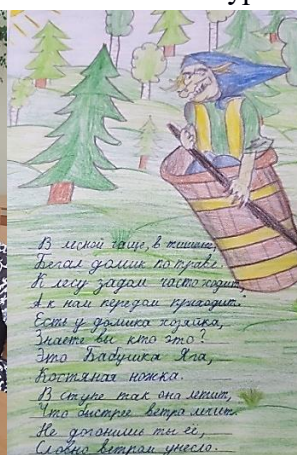 В лесной чаще, в тишине,
Бегал домик по траве.
К лесу задом часто ходит,
А к нам передом приходит.
Есть у домика хозяйка,
Знаете вы кто это?
Это Бабушка Яга,
Костяная ножка.
В ступе так она летит,
Что быстрее ветра мчит.
Не догонишь ты её,
Словно ветром унесло.